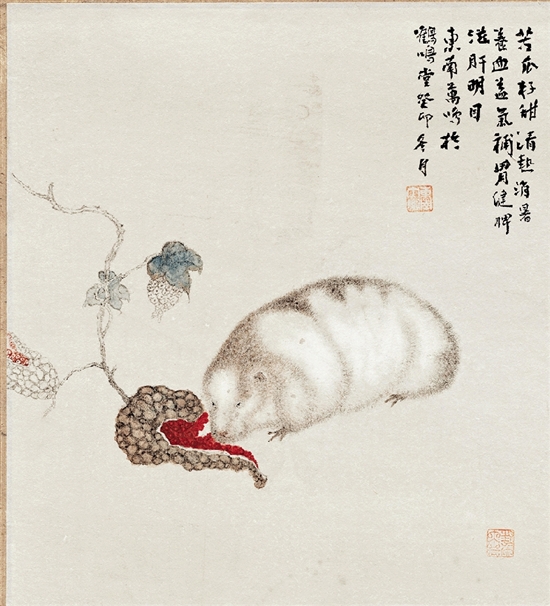 苦瓜籽甜清熱消暑
養血益氣補腎健脾
滋肝明目
東南萬鳴於
鶴鳴堂癸卯冬月